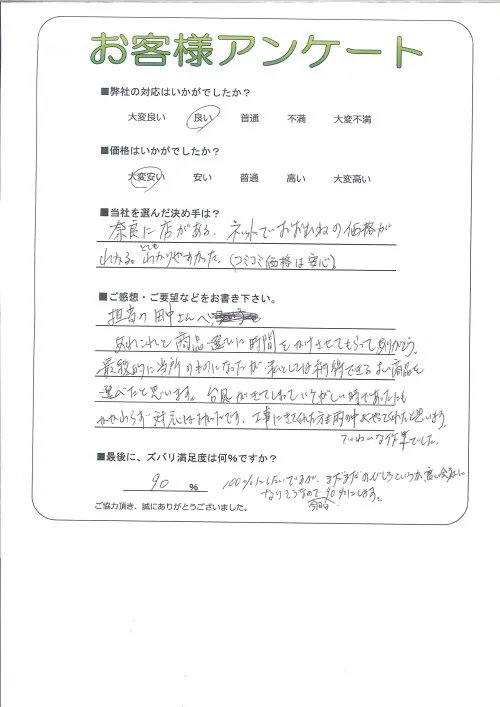 お客様アンケート
■弊社の対応はいかがでしたか？
大変良い 良い 普通 不満 大変不満
■価格はいかがでしたか？
大変安い 安い 普通 高い 大変高い
■当社を選んだ決め手は？
奈良に店がある。ネットでおおむねの価格が
わかる。とてもわかりやすかった。（コミコミ価格は安心）
■ご感想・ご要望などをお書き下さい。
担当の田中さんへ
あれこれと商品選びに時間をかけさせてもらってありがとう。
最終的に当初のものになったが私としては納得できるよい商品を
選べたと思います。台風がきていそがしい時であったにも
かかわらず対応は 工事にきてくれた方も雨の中よくやってくれたと思います。
ていねいな作業でした。
■最後に、ズバリ満足度は何%ですか？
90 %
100%にしたいですが、まだまだのびしろというか良い会社に
なりそうなので今回は90%にします。
ご協力頂き、誠にありがとうございました。